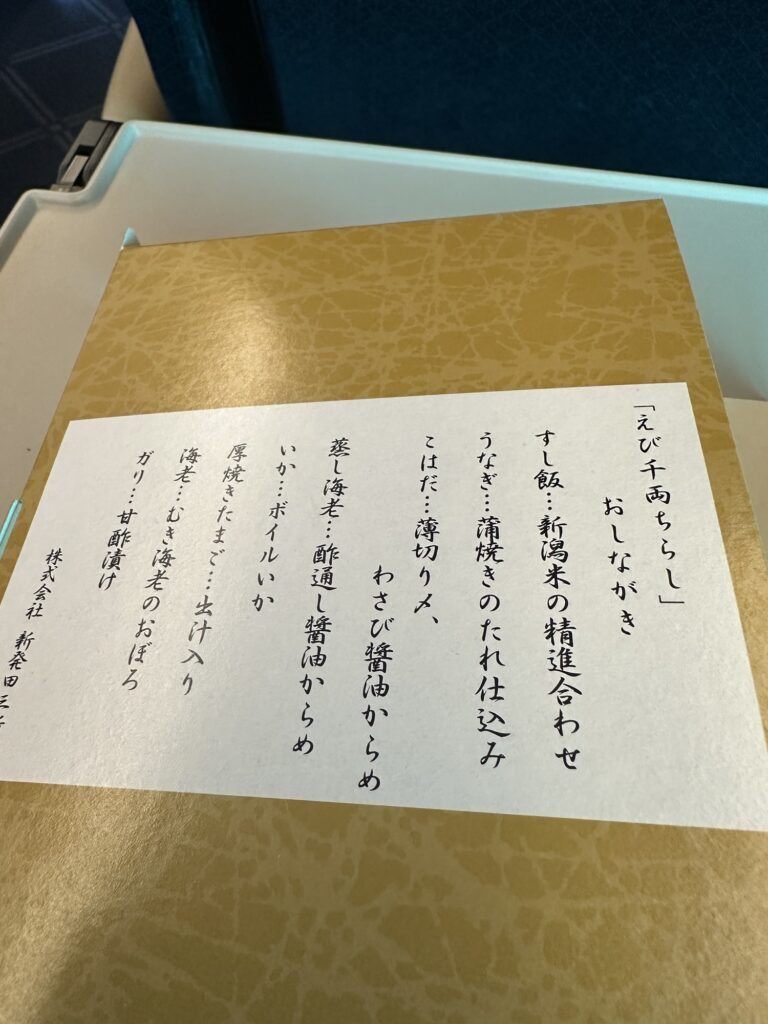 「えび千両ちらし」
おしながき
すし飯…新潟米の精進合わせ
うなぎ…蒲焼きのたれ仕込み
こはだ…薄切り〆、
わさび醤油からめ
蒸し海老…酢通し醤油からめ
いか…ボイルいか
厚焼きたまご…出汁入り
海老…むき海老のおぼろ
ガリ…甘酢漬け
株式会社 新発田三